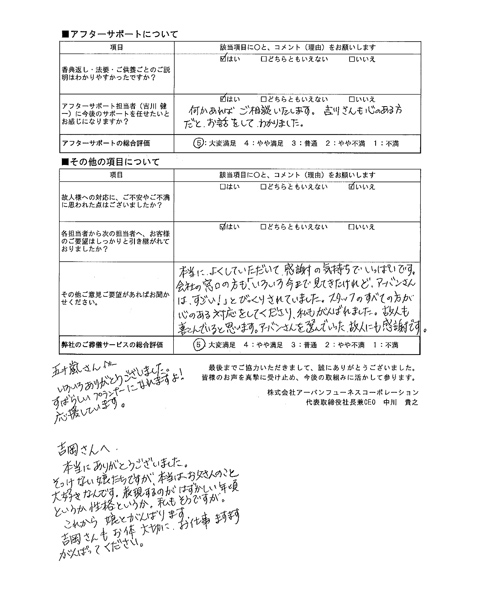 ■アフターサポートについて
項目
該当項目に○と、コメント（理由）をお願いします
香典返し・法要・ご供養ごとのご説
明はわかりやすかったですか？
☑はい □どちらともいえない □いいえ
アフターサポート担当者（吉川 健
一）に今後のサポートを任せたいと
お感じになりますか？
☑はい □どちらともいえない □いいえ
何かあれば ご相談いたします。吉川さんも心のある方
だと、お話をして わかりました。
アフターサポートの総合評価
⑤：大変満足 4：やや満足 3：普通 2：やや不満 1：不満
■その他の項目について
項目
該当項目に○と、コメント（理由）をお願いします
故人様への対応に、ご不安やご不満
に思われた点はございましたか？
□はい □どちらともいえない ☑いいえ
各担当者から次の担当者へ、お客様
のご要望はしっかりと引き継がれて
おりましたか？
☑はい □どちらともいえない □いいえ
その他ご意見ご要望があればお聞か
せください。
本当に、よくしていただいて 感謝の気持ちでいっぱいです。
会社の窓口の方も「いろいろ今まで見てきたけれど、アーバンさん
は、すごい！」とびっくりされていました。スタッフのすべての方が
心のある対応をしてくださり、私もがんばれました。故人も
喜んでいると思います。アーバンさんを選んでいた 故人にも感謝です。
弊社のご葬儀サービスの総合評価
⑤：大変満足 4：やや満足 3：普通 2：やや不満 1：不満
最後までご協力いただきまして、誠にありがとうございました。
皆様のお声を真摯に受け止め、今後の取組みに活かして参ります。
株式会社アーバンフューネスコーポレーション
代表取締役社長兼CEO 中川 貴之
五十嵐さんへ
いろいろありがとうございました。
すばらしいプランナーになれますよ！
応援しています。
吉岡さんへ
本当にありがとうございました。
そっけない娘たちですが、本当はお父さんのこと
大好きなんです。表現するのがはずかしい年頃
というか性格というか。私もそうですが。
これから 娘とがんばります。
吉岡さんも お体 大切に、お仕事 ますます
がんばってください。